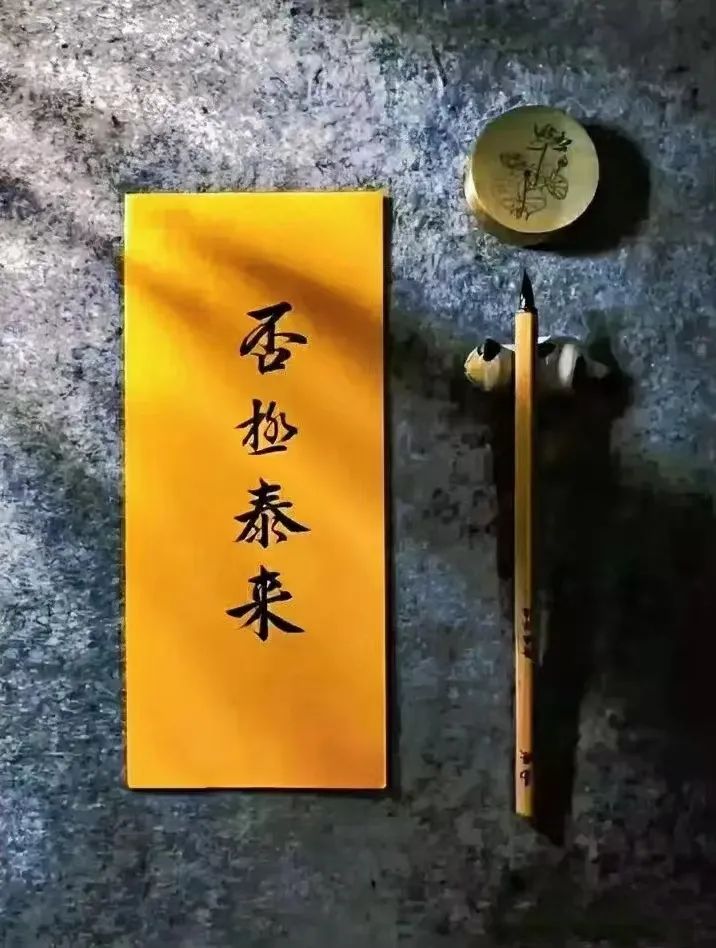 否极泰来